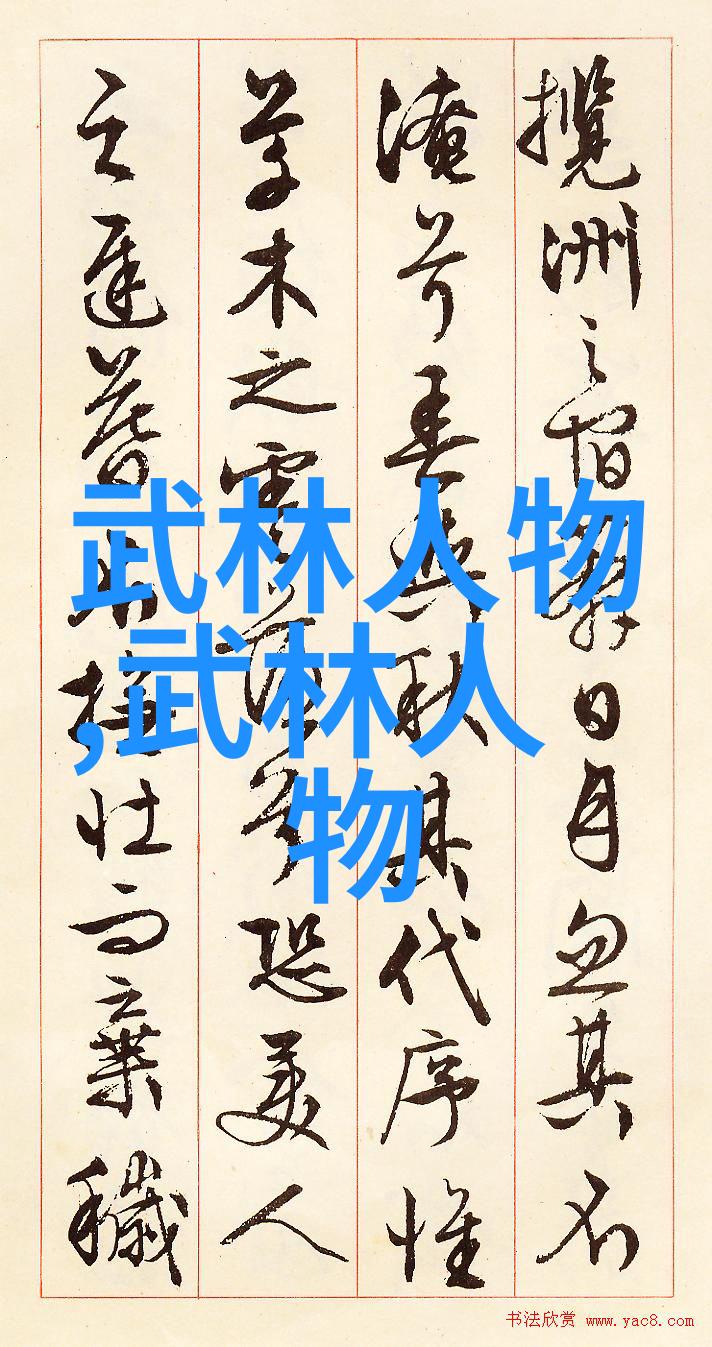 攬洲之宿莽日月忽其不
淹兮春與秋其代序惟
草木之零落兮恐美人
之遲暮不撫壯而棄穢
武林人物
,武林人
物
书法欣赏 www.yac8.com